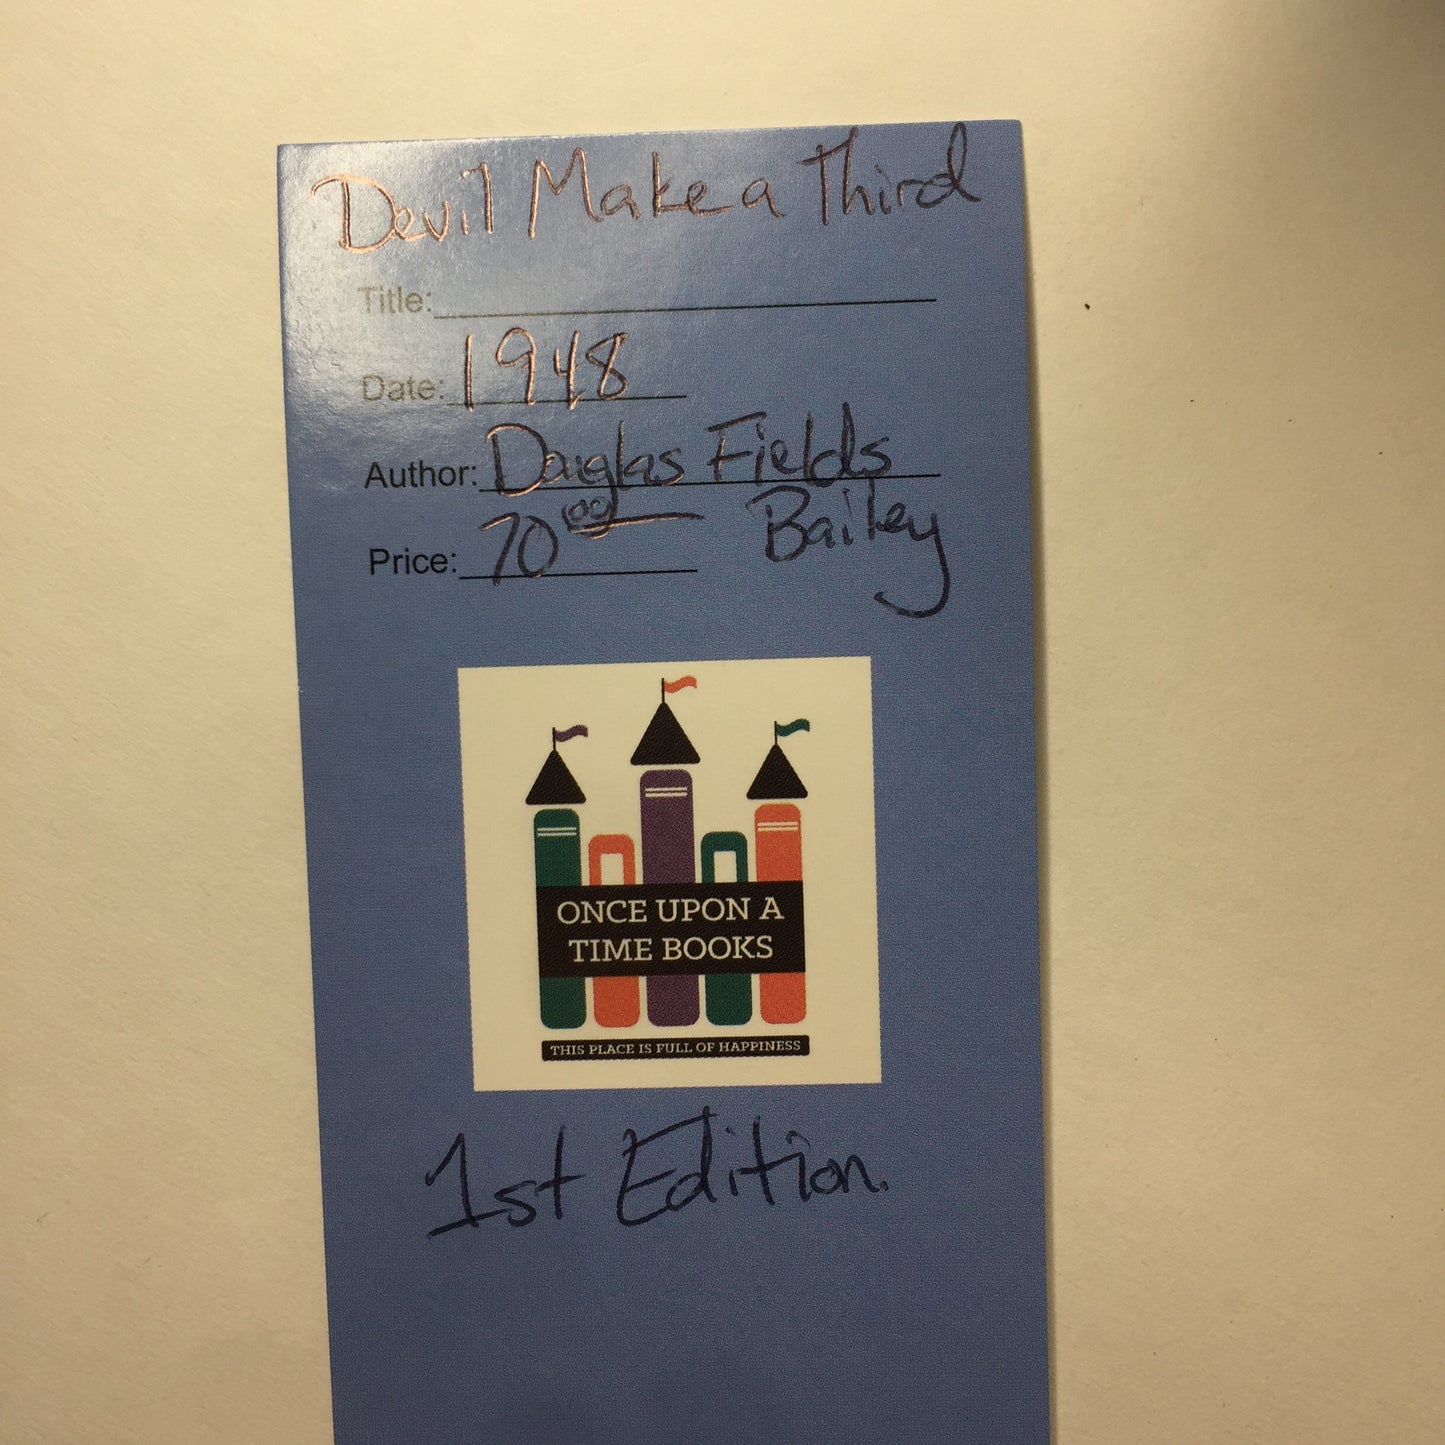 Devil Make a Third
Title:
Date: 1948
Author: Douglas Fields
Bailey
Price: 70 00
ONCE UPON A
TIME BOOKS
THIS PLACE IS FULL OF HAPPINESS
1st Edition.